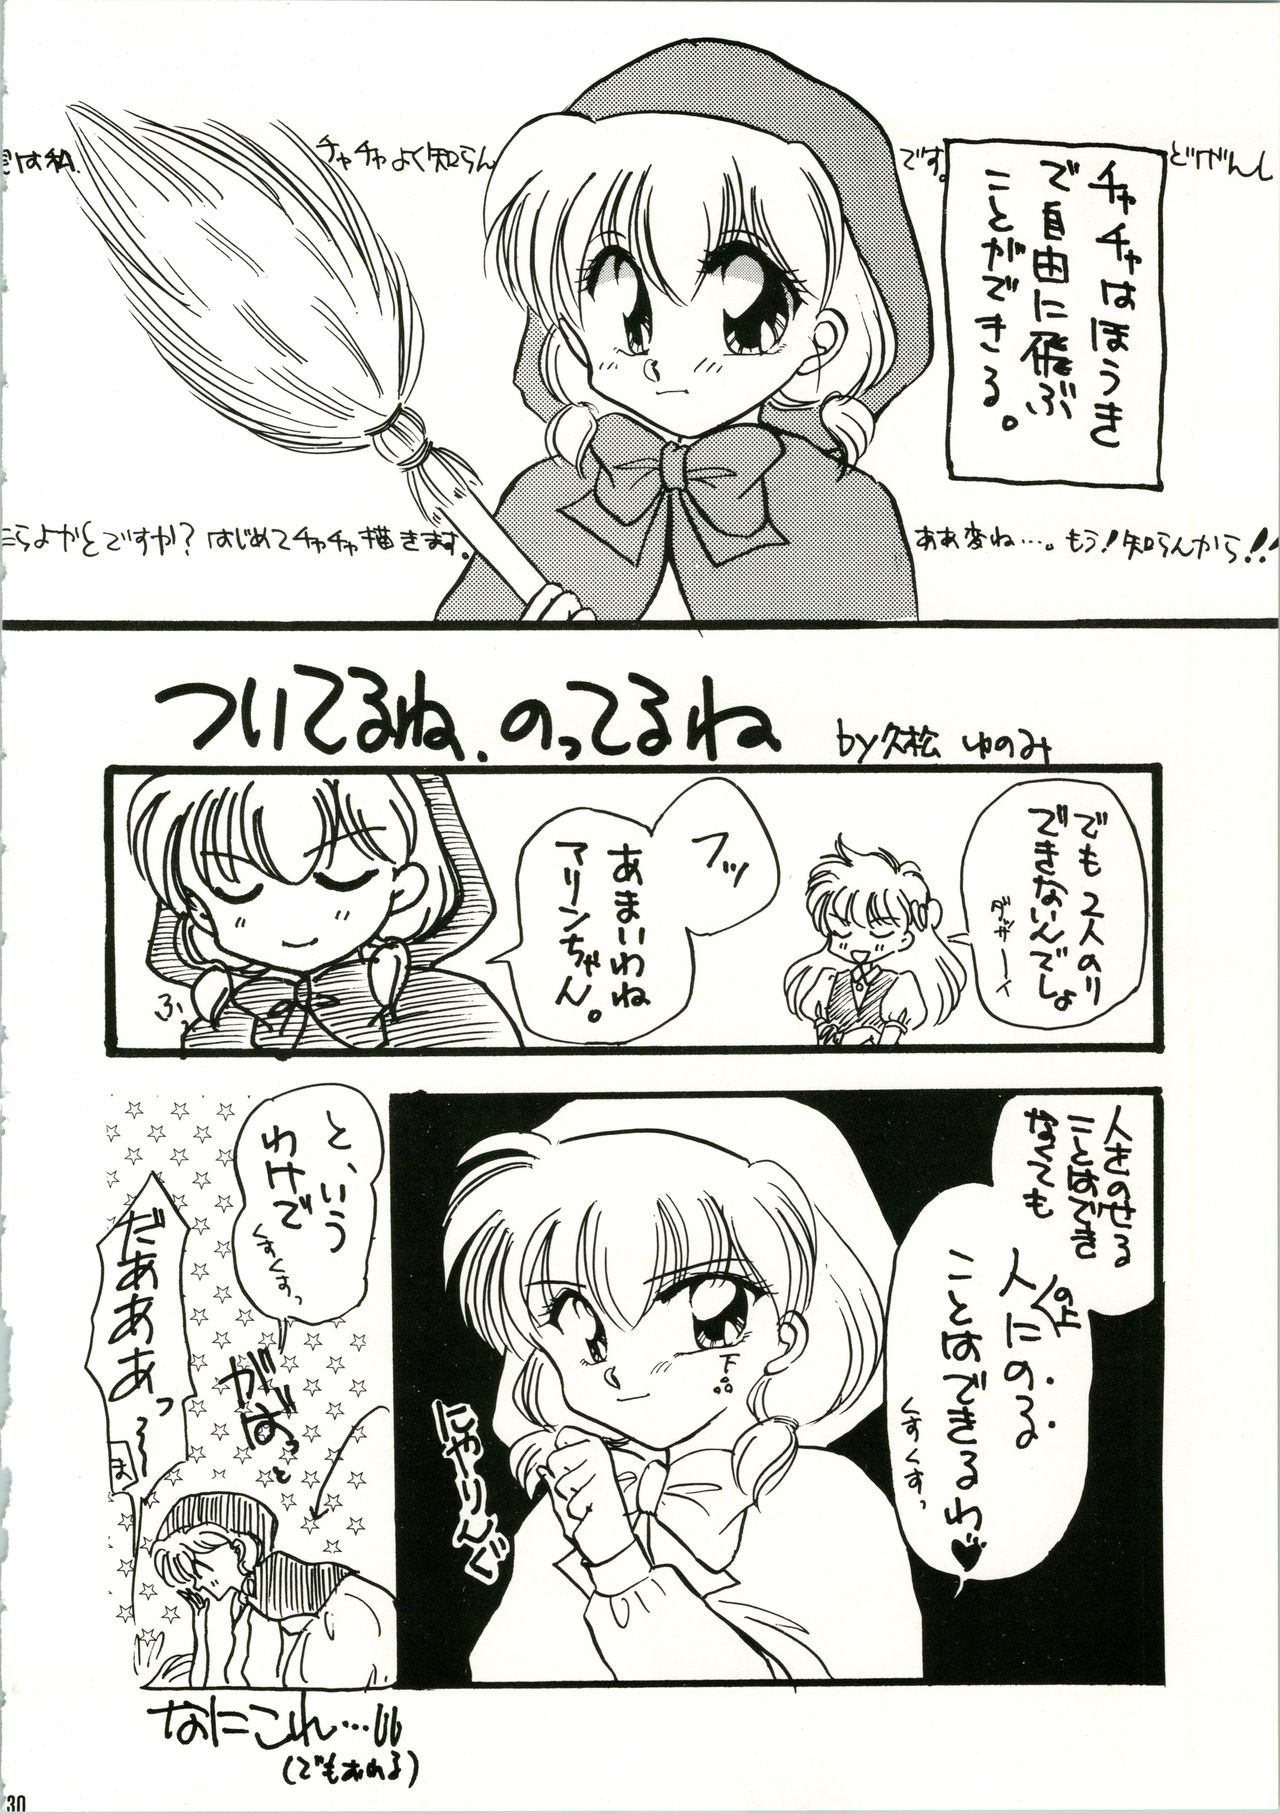 実は私、チャチャよく知らんです。どげんし
たらよかとですか？はじめてチャチャ描きます。ああ変ね…。もう！知らんから！！
チャチャはほうき
で自由に飛ぶ
ことができる。
ついてるね、のってるね
by久松 ゆのみ
でも2人のり
できないんでしょ
ダッサーイ
フッ
あまいわね
マリンちゃん。
ふ、
人をのせる
ことはできなくても
人にのる
の上
ことはできるわ♥
くすくすっ
下品
にやりんぐ
と、いう
わけで
くすくすっ
がばっと
だあああっ
ま
なにこれ…
(でもおわる)
30